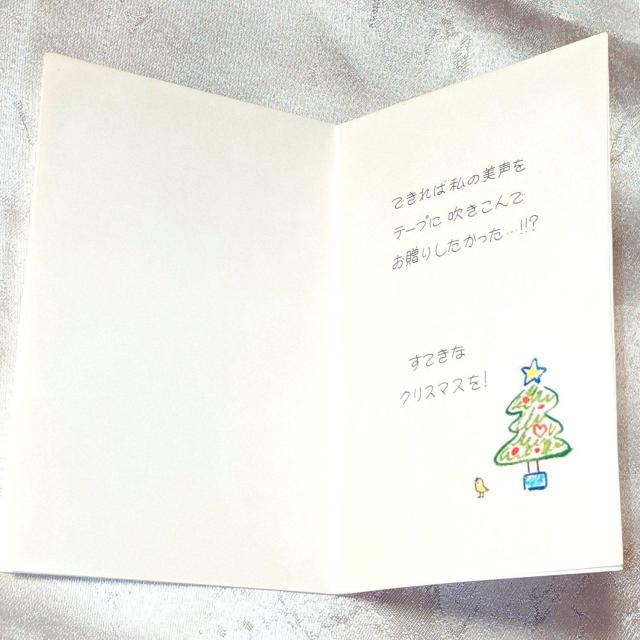 できれば私の美声を
テープに吹きこんで
お贈りしたかった…!!?
すてきな
クリスマスを!